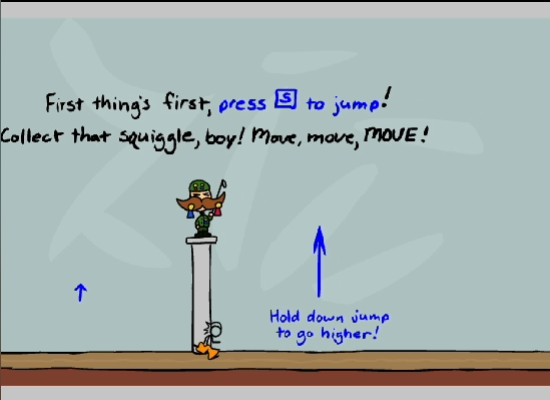 First thing's first, press S to jump!
Collect that squiggle, boy! Move, move, MOVE!
Hold down jump
to go higher!